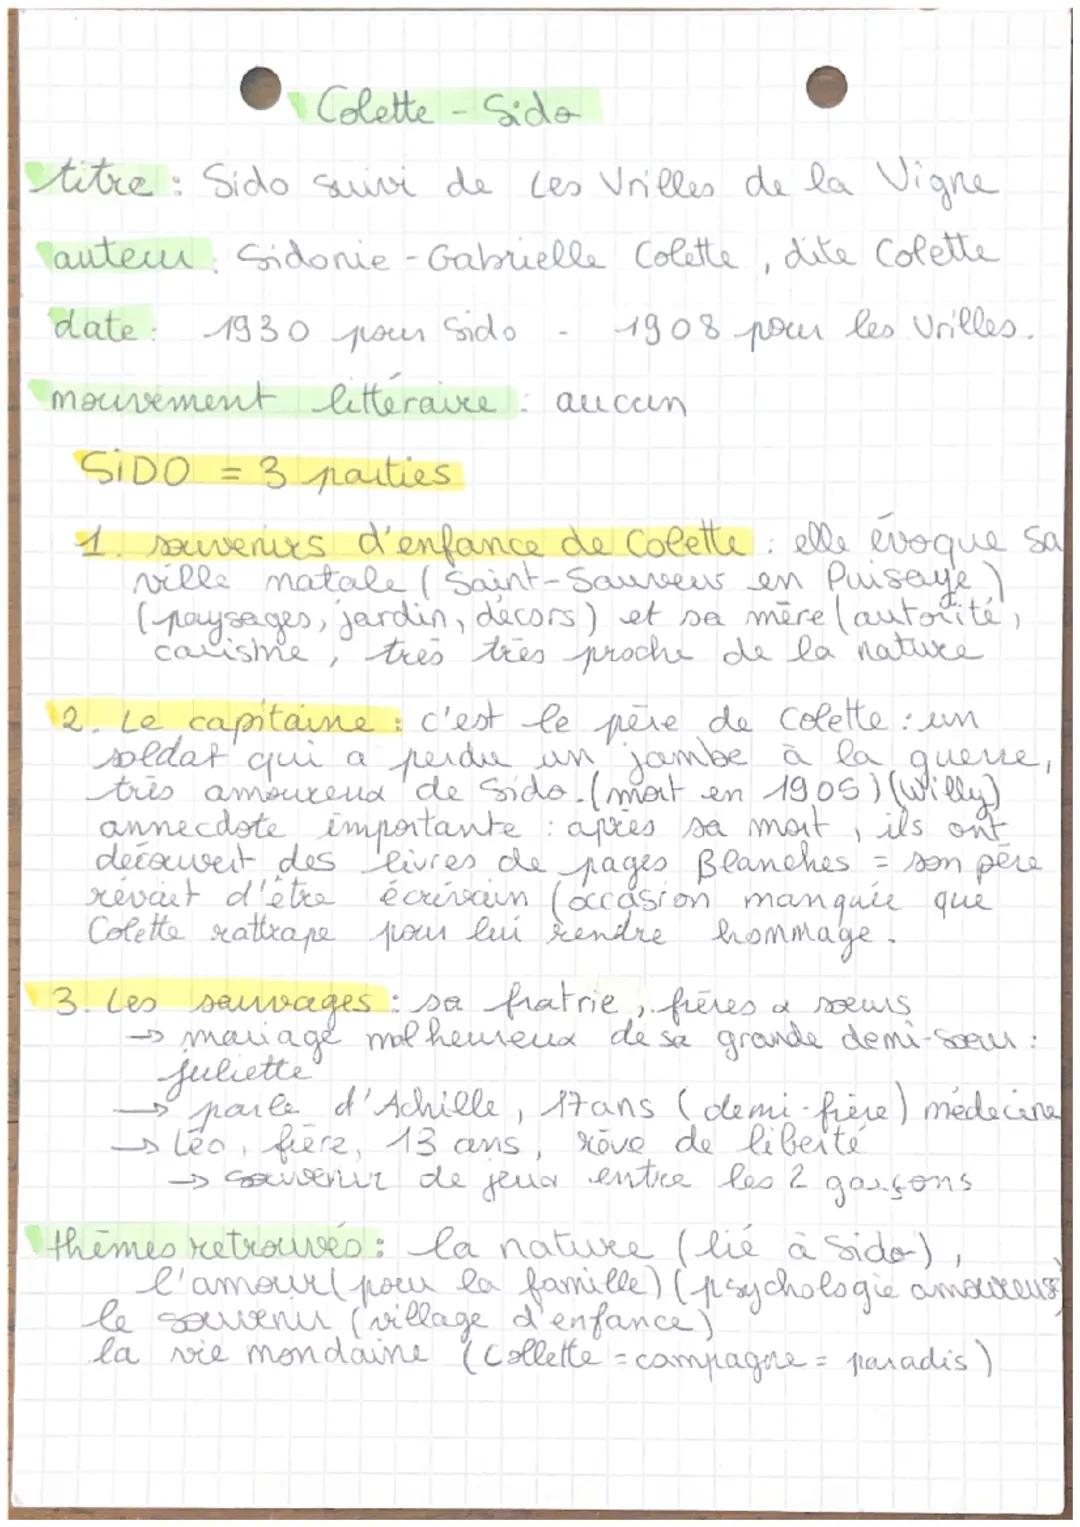 Colette - Sido
titre : Sido suivi de Les Vrilles de la Vigne
auteur : Sidonie-Gabrielle Colette, dite Colette
date : 1930 pour Sido - 1908 pour les Vrilles.
mouvement littéraire : aucun
SiDO = 3 parties
1. souvenirs d'enfance de Colette : elle évoque sa
ville natale (Saint-Sauveur en Puisaye)
(paysages, jardin, décors) et sa mère (autorité,
carisme, très très proche de la nature
2. Le capitaine : c'est le père de Colette : un
soldat qui a perdu un jambe à la guerre,
très amoureux de Sido. (mort en 1905) (Willy)
annecdote importante : après sa mort, ils ont
découvert des livres de pages Blanches = son père
rêvait d'être écrivain (occasion manquée que
Colette rattrape pour lui rendre hommage.
3. Les sauvages : sa fratrie, frères & soeurs
→ mariage malheureux de sa grande demi-soeur :
Juliette
→ parle d'Achille, 17ans (demi-frère) médecine
→ Léo, frère, 13 ans, rêve de liberté
→ souvenir de jeux entre les 2 garçons
thèmes retrouvés : la nature (lié à Sido),
l'amour (pour la famille) (psychologie amoureuse)
le souvenir (village d'enfance)
la vie mondaine (Collette = campagne = paradis)